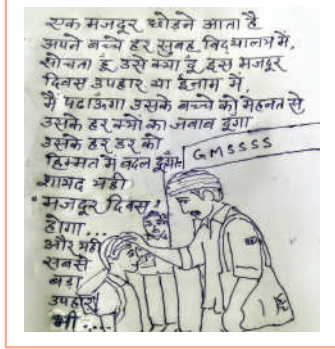 एक मजदूर छोड़ने आता है
अपने बच्चे हर सुबह विद्यालय में,
सोचता हूँ उसे क्या दूं इस मजदूर
दिवस उपहार या ईनाम में,
मैं पढाऊँगा उसके बच्चे को मेहनत से
उसके हर क्यों का जबाब दूंगा
उसके हर डर को
हिम्मत में बदल दूँगा
GMSSSS
शायद यही
मजदूर दिवस!
होगा...
और यही
सबसे
बड़ा
उपहार
भी....